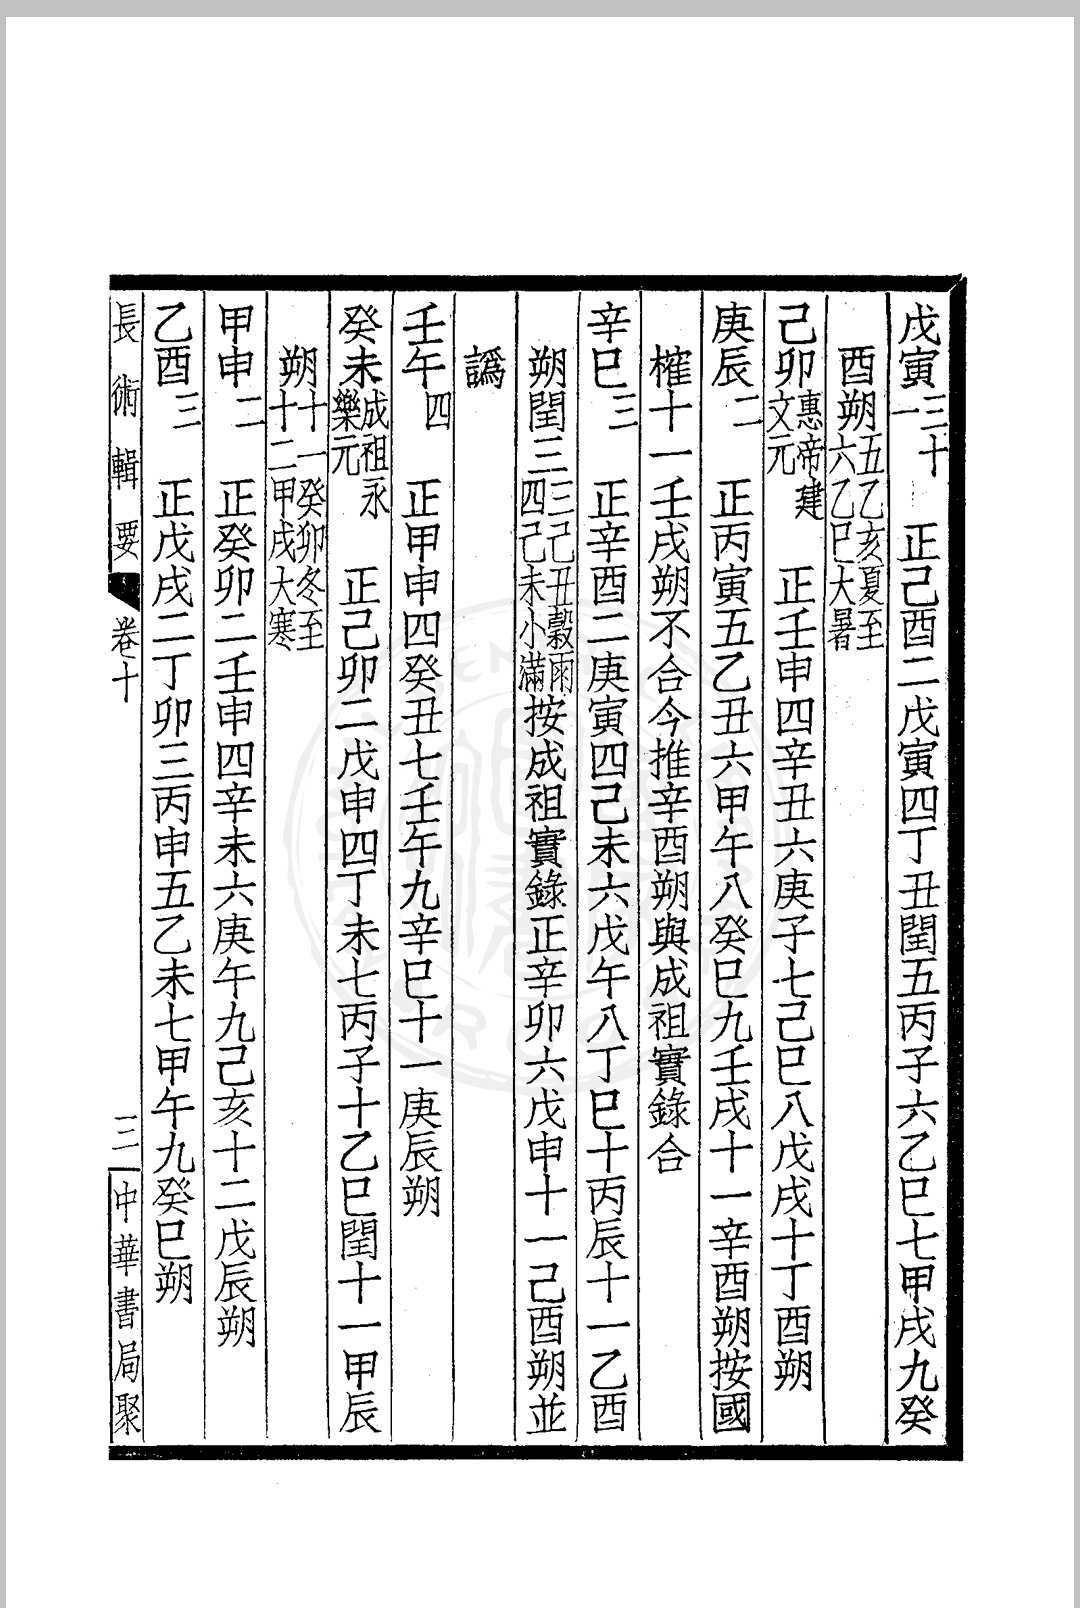 戊寅三十一 正己酉二戊寅四丁丑閏五丙子六乙巳七甲戌九癸
酉朔五乙亥夏至六乙巳大暑
己卯惠帝建文元 正壬申四辛丑六庚子七己巳八戊戌十丁酉朔
庚辰二 正丙寅五乙丑六甲午八癸巳九壬戌十一辛酉朔按國
榷十一壬戌朔不合今推辛酉朔與成祖實錄合
辛巳三 正辛酉二庚寅四己未六戊午八丁巳十丙辰十一乙酉
朔閏三三己丑穀雨四己未小滿按成祖實錄正辛卯六戊申十一己酉朔並
譌
壬午四 正甲申四癸丑七壬午九辛巳十一庚辰朔
癸未成祖永樂元 正己卯二戊申四丁未七丙子十乙巳閏十一甲辰
朔十一癸卯冬至十二甲戌大寒
甲申二 正癸卯二壬申四辛未六庚午九己亥十二戊辰朔
乙酉三 正戊戌二丁卯三丙申五乙未七甲午九癸巳朔
長術輯要 卷十 三 中華書局聚